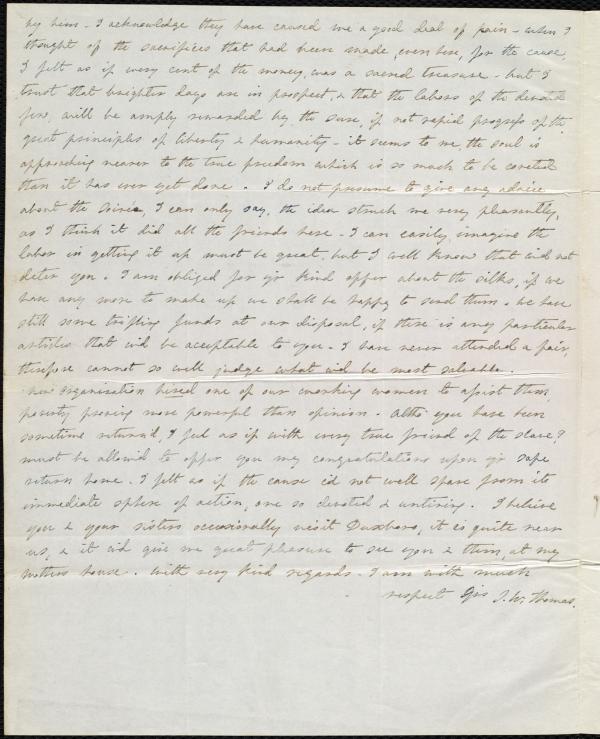 by him - I acknowledge they have caused me a good deal of pain - when I
thought of the sacrifices that had been made, even here, for the cause,
I felt as if every cent of the money, was a sacred treasure - but I
trust that brighter days are in prospect, & that the labors of the devoted
few, will be amply rewarded by the sure, if not rapid progress of the
great principles of liberty & humanity - it seems to me, the soul is
approaching nearer to the true freedom which is so much to be coveted
than it has ever yet done . I do not presume to give any advice
about the Soirée, I can only say, the idea struck me very pleasantly,
as I think it did all the friends here - I can easily imagine the
labor in getting it up must be great, but I well know that wid not
deter you . I am obliged for yr kind offer about the silks, if we
have any more to make up we shall be happy to send them . We have
still some trifling funds at our disposal, if there is any particular
articles that wd be acceptible to you - I have never attended a fair,
therefore cannot so well judge what wd be most saleable .
New Organisation hired one of our working women to assist them,
poverty proving more powerful than opinion . Altho' you have been
sometime return'd, I feel as if with every true friend of the slave I
must be allow'd to offer you my congratulations upon yr safe
return home . I felt as if the cause cd not well spare from its
immediate sphere of action, one so devoted & untiring . I believe
you & your sisters occasionally visit Duxboro, it is quite near
us, & it wd give me great pleasure to see you & them, at my
mothers house . With very kind regards - I am with much
respect Yrs J. W. Thomas.